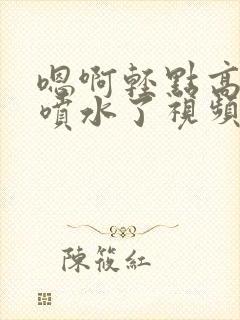 嗯啊輕點高
噴水了視頻
陳筱紅